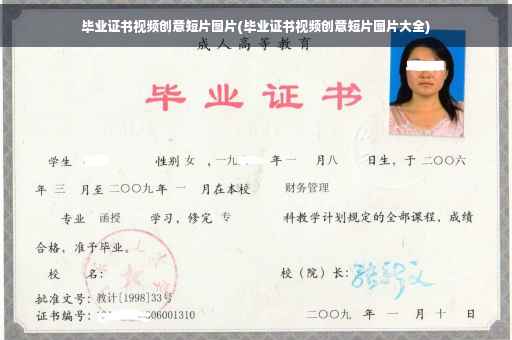 毕业证书视频创意短片图片(毕业证书视频创意短片图片大全)
成人高等教育
毕业证书
学生 性别 女 ,一九 年 一 月 八 日生,于 二〇〇六
年 三 月至 二〇〇九 年 一 月在本校 财务管理
专业 函授 学习,修完 专 科教学计划规定的全部课程,成绩
合格,准予毕业。
校 名: 校(院)长:
批准文号:教计[1998]33号
证书编号: 06001310 二〇〇九 年 一 月 十 日